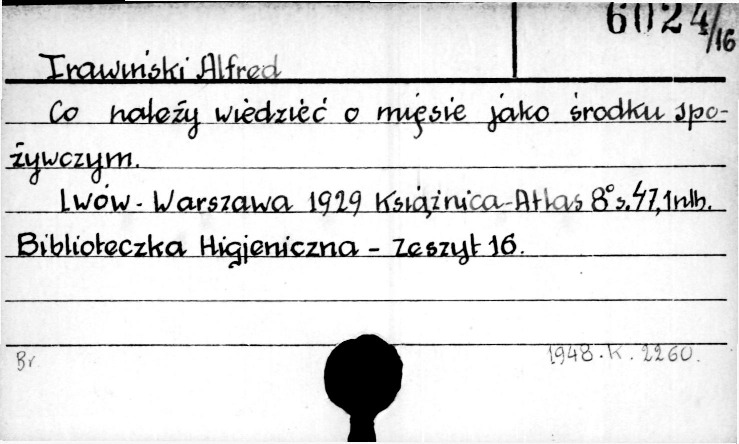 6024/16
Trawiński Alfred
Co należy wiedzieć o mięsie jako środku spo-
żywczym.
Lwów - Warszawa 1929 Książnica-Atlas 8° s. 47, 1 nlb.
Biblioteczka Higjeniczna - Zeszyt 16.
Br
1948. K. 2260.